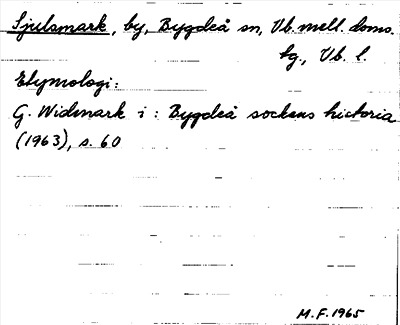 Sjulsmark, by, Bygdeå sn, Vb. mell. doms.
tg., Vb. l.
Etymologi:
G. Widmark i: Bygdeå sockens historia
(1963), s. 60
M.F. 1965